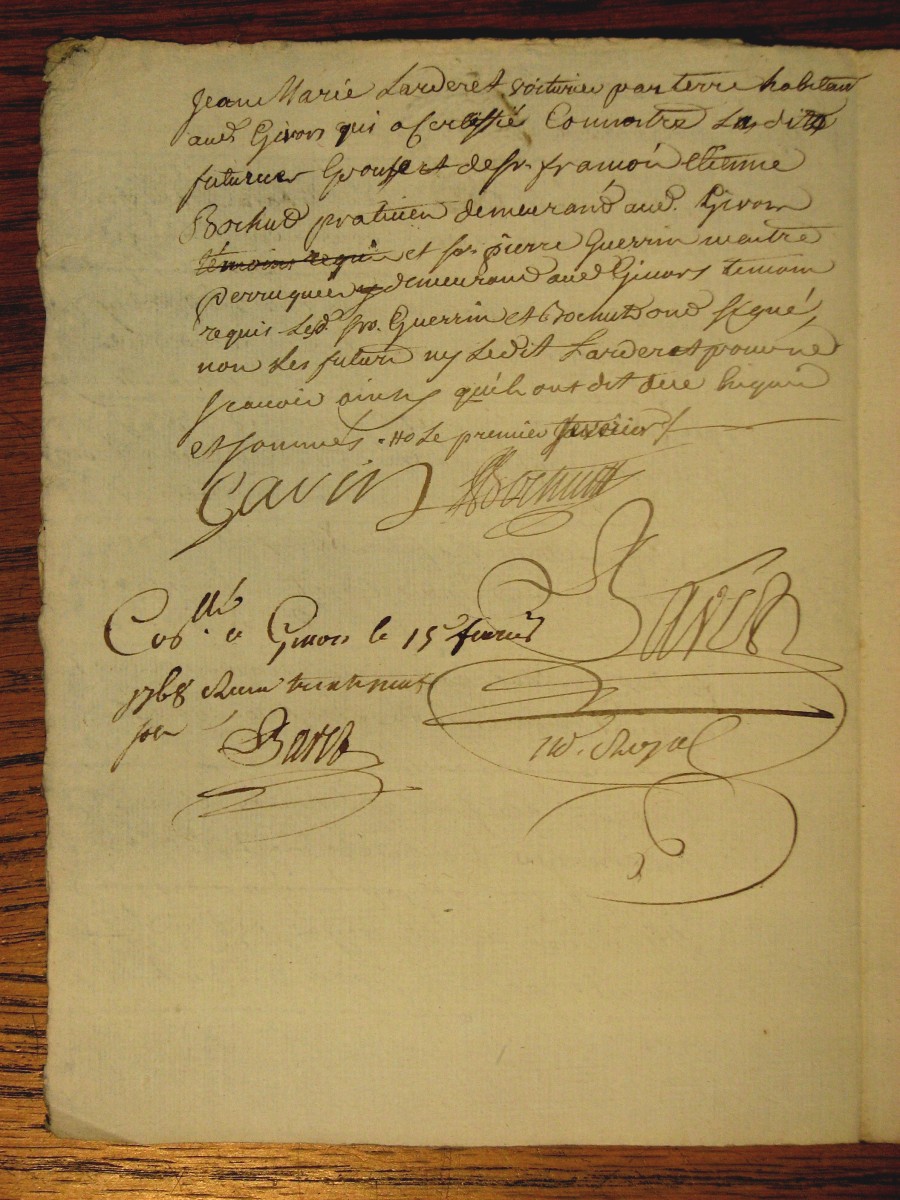 Jean Marie Larderet voiturier par terre habitant
aud Givors qui a certiffié Connoitre Lesdits
futurs et de sr. françois Etienne
Brochud praticien demeurand aud. Givors
témoins requis et sr. pierre Guerrin maitre
perruquier demeurand aud Givors temoins
requis Lesd. srs. Guerrin et Brochut ond signé,
non Les futurs ny Ledit Larderet pour ne
scavoir ainsy qu'ils ont dit de ce Enquis
et sommés. Le premier fevrier /.
Gavin Brochutt
Bavér
Coll
a Givors le 15e fevrier
1768 trente neuf
sols
Baver
no. Royal